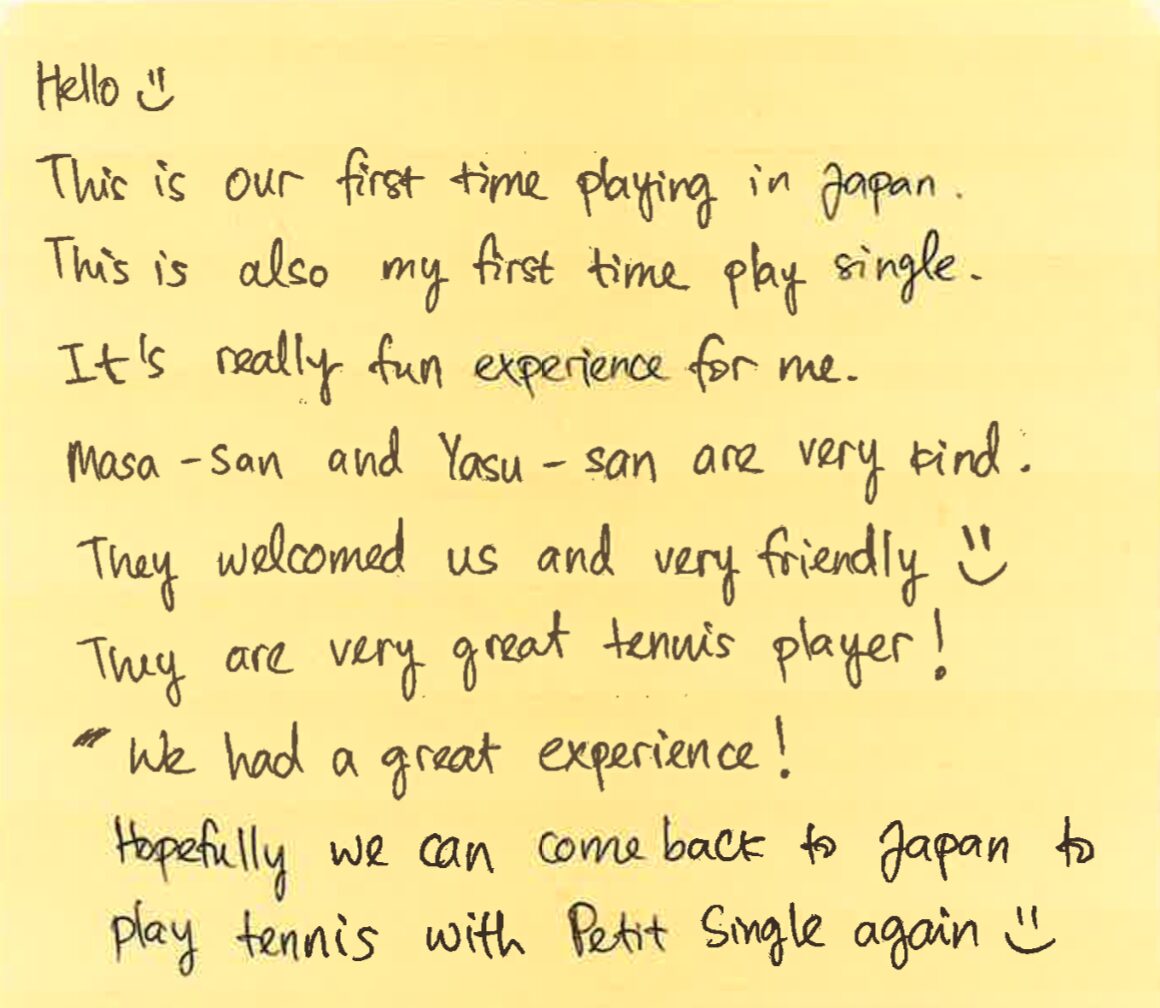 Hello
This is our first time playing in Japan.
This is also my first time play single.
It's really fun experience for me.
Masa-san and Yasu-san are very kind.
They welcomed us and very friendly
They are very great tennis player!
We had a great experience!
Hopefully we can come back to Japan to
play tennis with Petit Single again